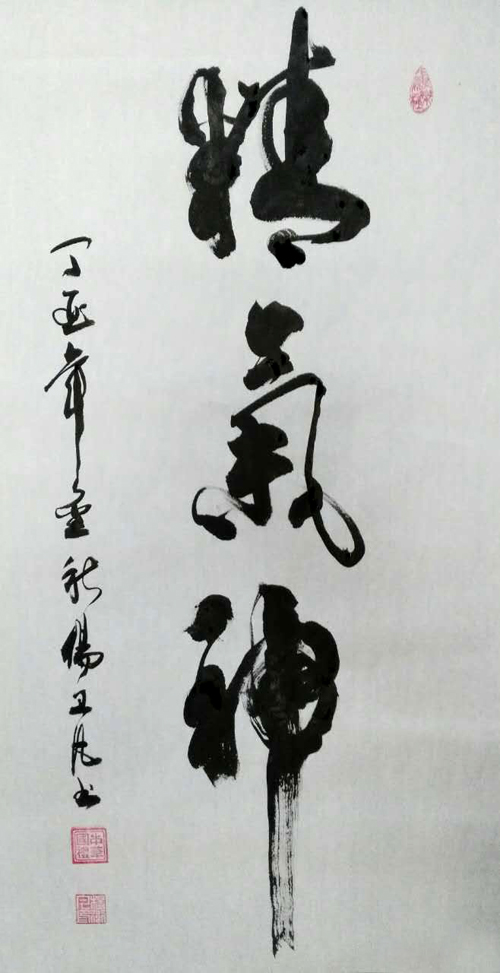 精氣神
丁酉年金秋楊卫凡书